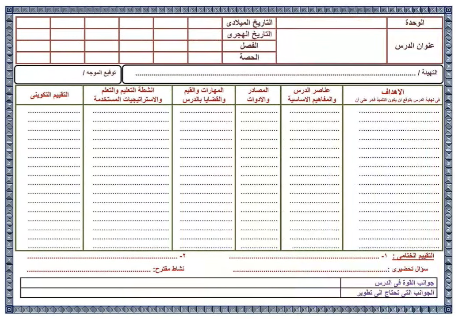 الوحدة
التاريخ الميلادى
التاريخ الهجرى
عنوان الدرس
الفصل
الحصة
التهيئة /
توقيع الموجه /
الاهداف
فى نهاية الدرس يتوقع ان يكون التلميذ قادر على ان
عناصر الدرس
والمفاهيم الاساسية
المصادر
والادوات
المهارات والقيم
والقضايا بالدرس
أنشطة التعليم والتعلم
والاستراتيجيات المستخدمة
التقييم التكوينى
التقييم الختامى : ١-
٢-
سؤال تحضيرى :
نشاط مقترح:
جوانب القوة فى الدرس
الجوانب التى تحتاج الى تطوير